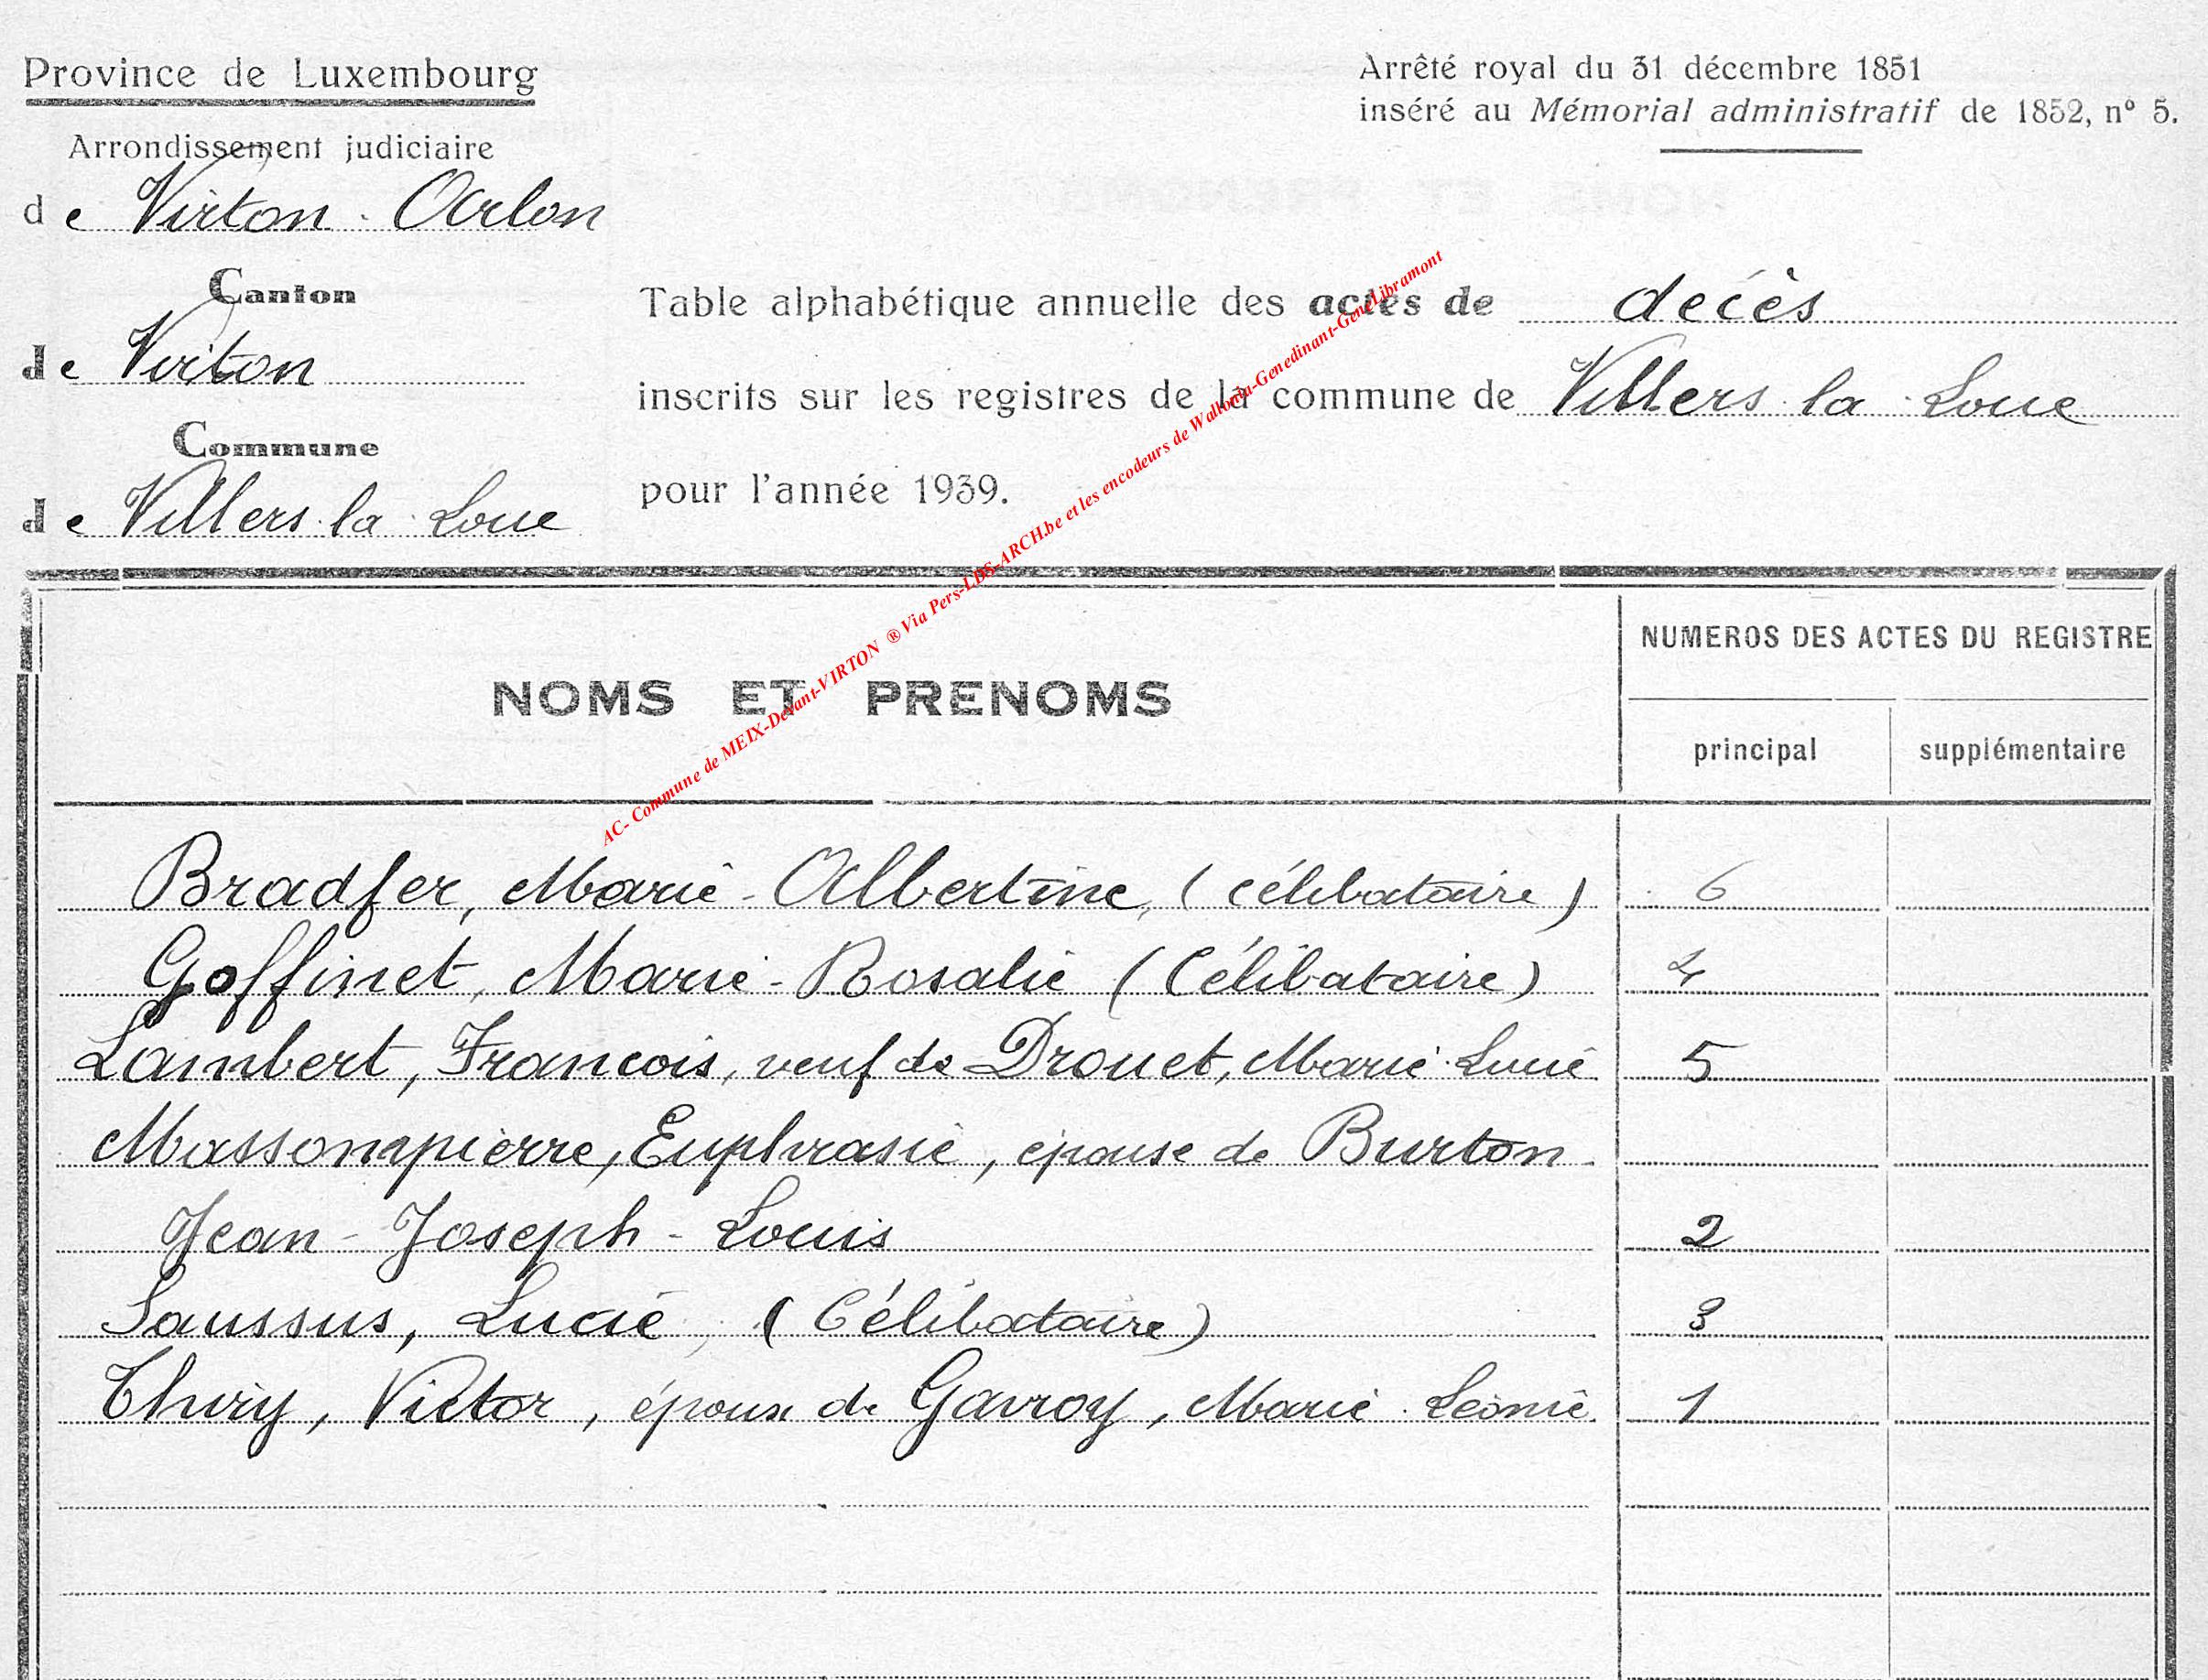 Province de Luxembourg
Arrêté royal du 31 décembre 1851
inséré au Mémorial administratif de 1852, nº 5.
Arrondissement judiciaire
de Virton - Arlon
Canton
de Virton
Commune
de Villers-la-Loue
Table alphabétique annuelle des actes de décès
inscrits sur les registres de la commune de Villers-la-Loue
pour l'année 1939.
AC- Commune de MEIX-Devant-VIRTON ® Via Pers-LDS-ARCH.be et les encodeurs de Wallonia-Genedinant-GeneLibramont
NOMS ET PRENOMS
NUMEROS DES ACTES DU REGISTRE
principal supplémentaire
Bradfer, Marie-Albertine, (célibataire) 6
Goffinet, Marie-Rosalie (Célibataire) 4
Lambert, Francois, veuf de Drouet, Marie-Lucie 5
Massonpierre, Euphrasie, épouse de Burton
Jean-Joseph-Louis 2
Saussus, Lucie, (Célibataire) 3
Thiry, Victor, époux de Gavroy, Marie-Léonie 1